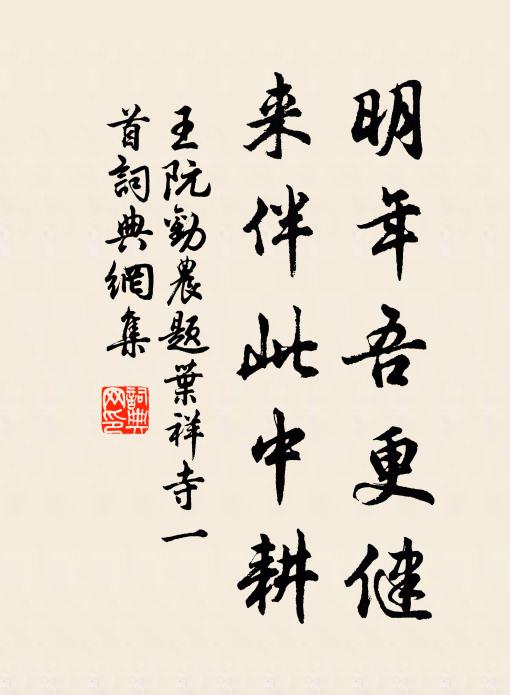 明年吾更健
来伴此中耕
王阮勸農題葉祥寺一
首詞典網集
詞典
网印